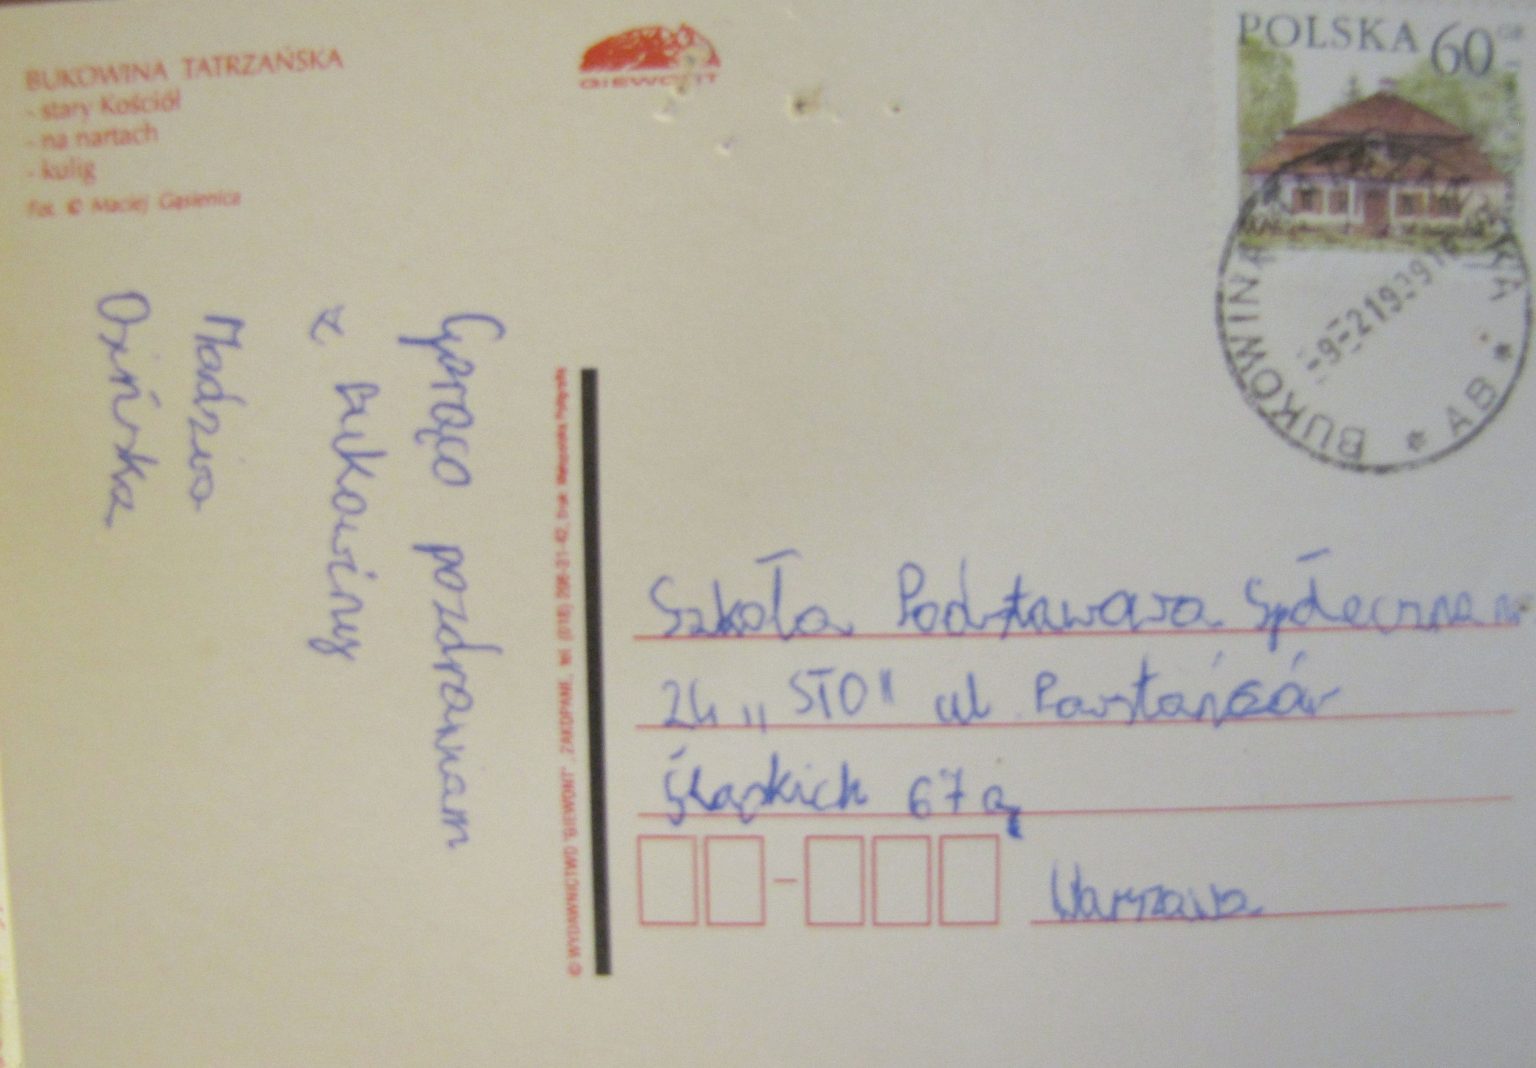 BUKOWINA TATRZAŃSKA
- stary Kościół
- na nartach
- kulig
Fot. © Maciej Gąsienica
GIEWONT
POLSKA 60 GR
BUKOWINA TATRZAŃSKA * AB *
-9-2199916
Gorąco pozdrawiam
z Bukowiny
Madzia
Ozińska
© WYDAWNICTWO "GIEWONT", ZAKOPANE, tel. (018) 206-31-42, Druk:
Szkoła Podstawowa Społeczna nr
24 „STO" ul Powstańców
Śląskich 67 a
Warszawa